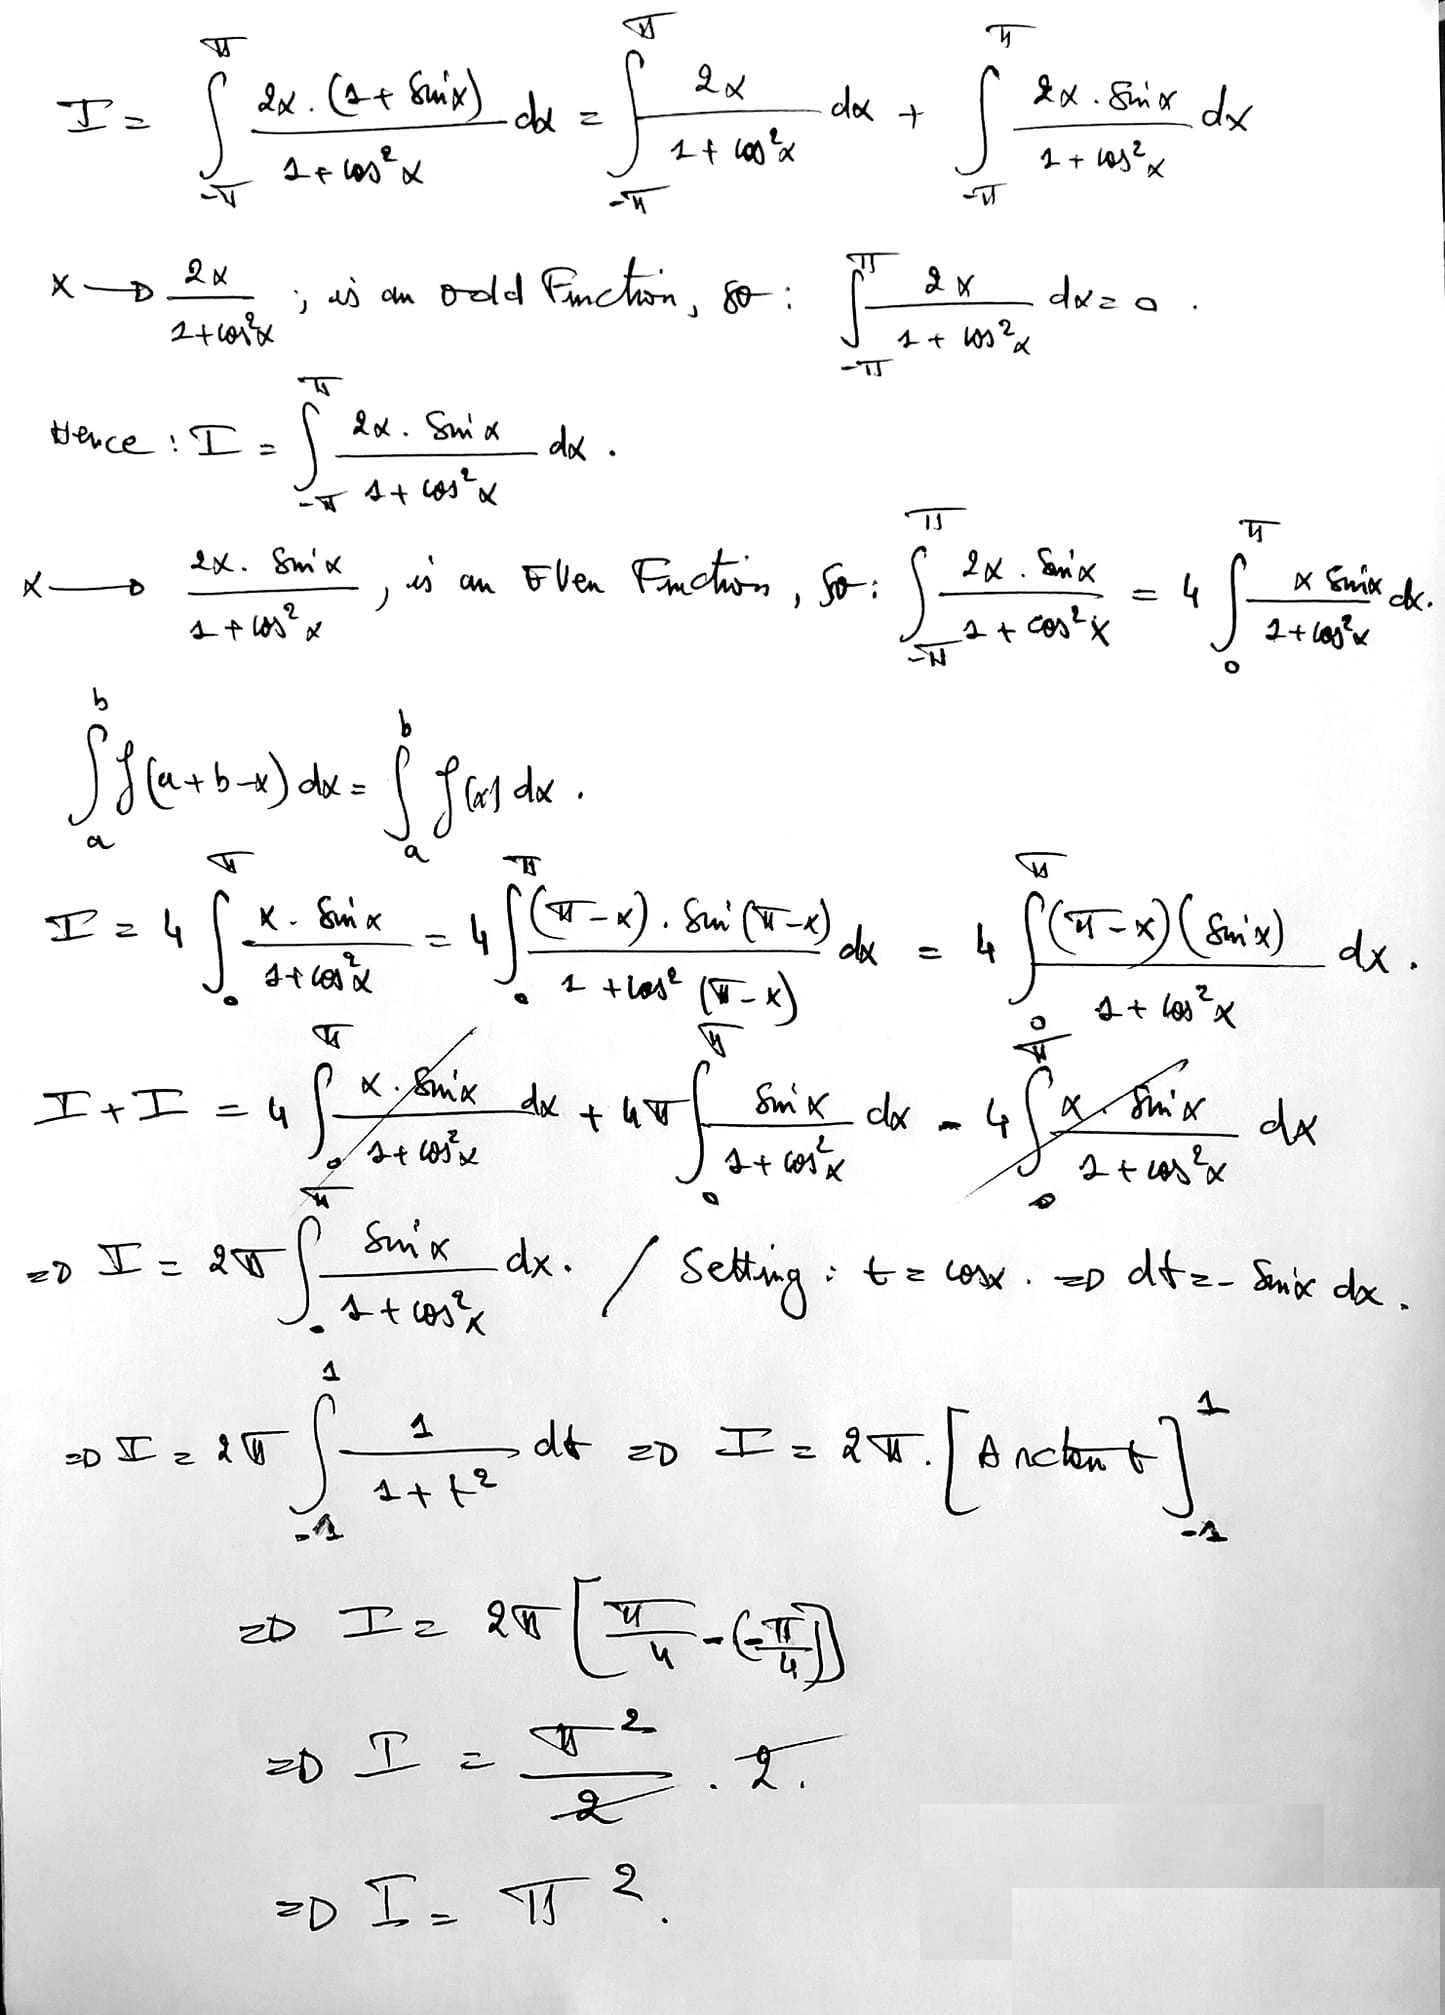 I = ∫_{-π}^{π} \frac{2x.(1+ Sin x)}{1+cos²x} dx = ∫_{-π}^{π} \frac{2x}{1+cos²x} dx + ∫_{-π}^{π} \frac{2x.Sin x}{1+cos²x} dx
x → \frac{2x}{1+cos²x} ; is an odd Function, so : ∫_{-π}^{π} \frac{2x}{1+cos²x} dx = 0 .
Hence : I = ∫_{-π}^{π} \frac{2x. Sin x}{1+cos²x} dx .
x → \frac{2x. Sin x}{1+cos²x} , is an Even Function , So : ∫_{-π}^{π} \frac{2x. Sin x}{1+cos²x} = 4 ∫_{0}^{π} \frac{x Sin x}{1+cos²x} dx.
∫_{a}^{b} f(a+b-x) dx = ∫_{a}^{b} f(x) dx .
I = 4 ∫_{0}^{π} \frac{x. Sin x}{1+cos²x} = 4 ∫_{0}^{π} \frac{(π-x). Sin(π-x)}{1+cos²(π-x)} dx = 4 ∫_{0}^{π} \frac{(π-x)(Sin x)}{1+cos²x} dx .
I + I = 4 ∫_{0}^{π} \frac{x. Sin x}{1+cos²x} dx + 4π ∫_{0}^{π} \frac{Sin x}{1+cos²x} dx - 4 ∫_{0}^{π} \frac{x. Sin x}{1+cos²x} dx
⇒ I = 2π ∫_{0}^{π} \frac{Sin x}{1+cos²x} dx. / Setting : t = cosx . ⇒ dt = - Sin x dx .
⇒ I = 2π ∫_{-1}^{1} \frac{1}{1+t²} dt ⇒ I = 2π . [Arctan t]_{-1}^{1}
⇒ I = 2π [\frac{π}{4} - (-\frac{π}{4})]
⇒ I = \frac{π²}{2} . 2 .
⇒ I = π² .